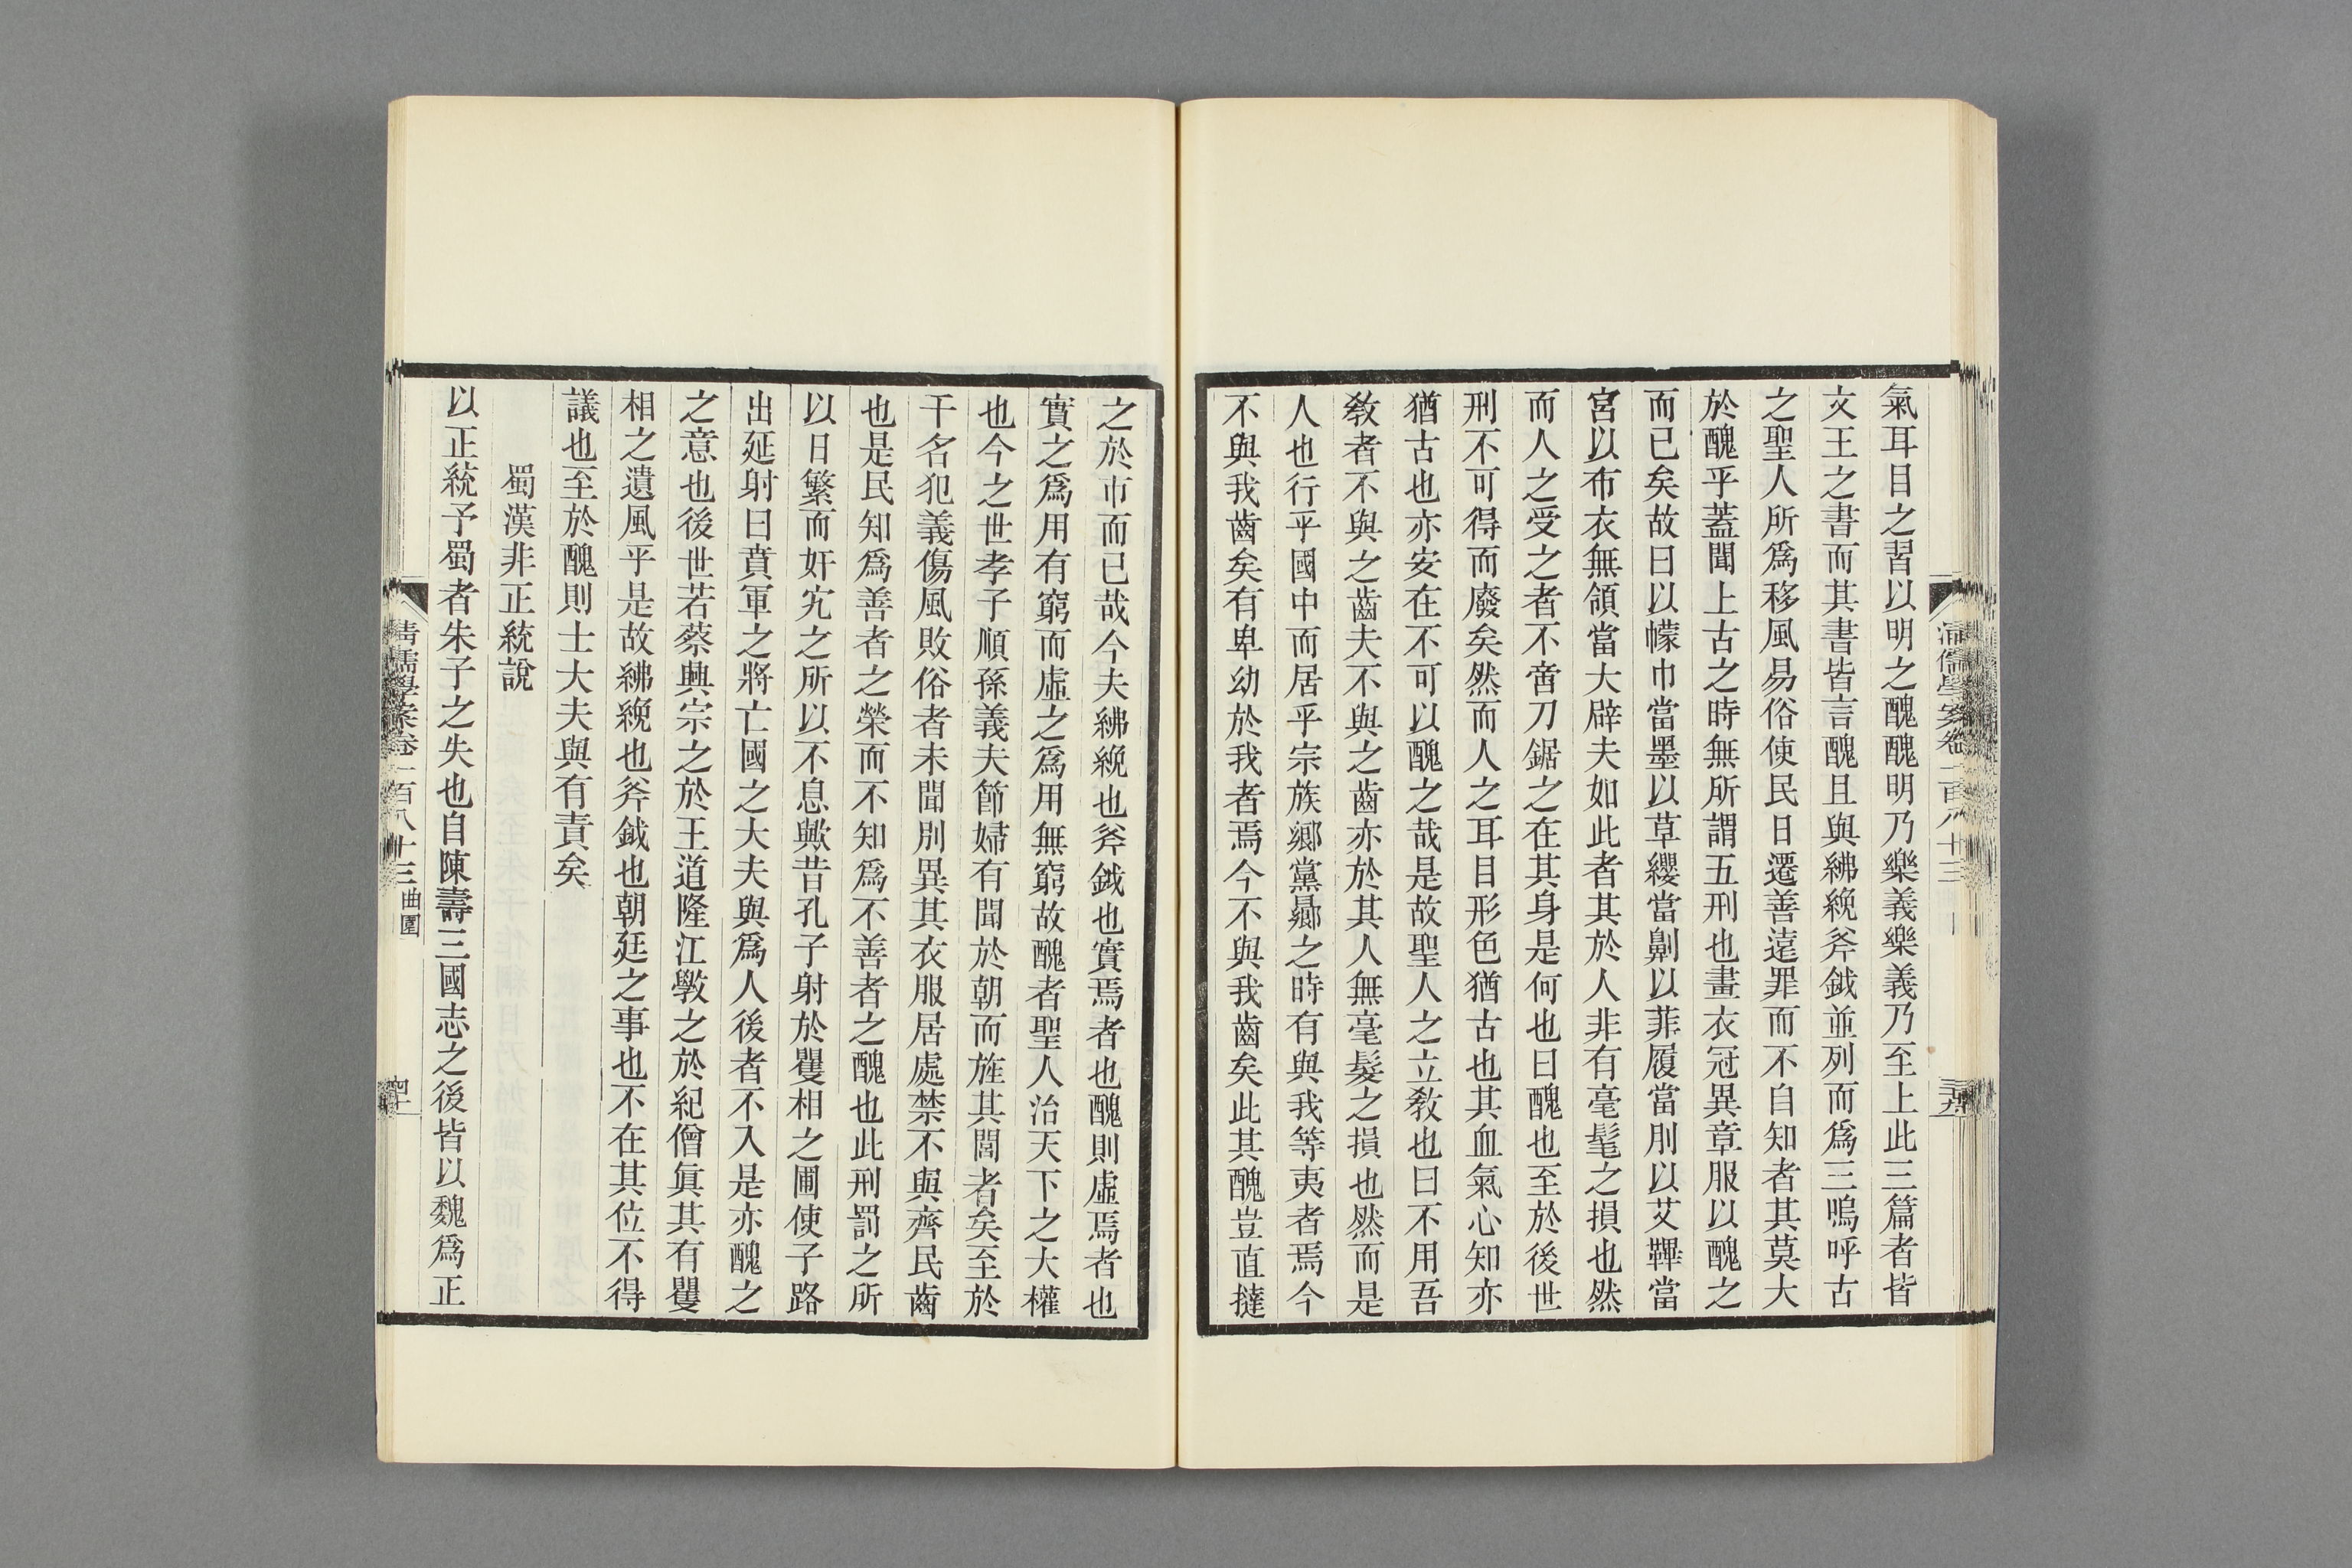 氣耳目之習以明之醜醜明乃樂義樂義乃至上此三篇者皆
文王之書而其書皆言醜且與紼絻斧鉞並列而爲三嗚呼古
之聖人所爲移風易俗使民日遷善遠罪而不自知者其莫大
於醜乎蓋聞上古之時無所謂五刑也畫衣冠異章服以醜之
而已矣故曰以幪巾當墨以草纓當劓以菲履當刖以艾韠當
宮以布衣無領當大辟夫如此者其於人非有毫髦之損也然
而人之受之者不啻刀鋸之在其身是何也曰醜也至於後世
刑不可得而廢矣然而人之耳目形色猶古也其血氣心知亦
猶古也亦安在不可以醜之哉是故聖人之立敎也曰不用吾
敎者不與之齒夫不與之齒亦於其人無毫髮之損也然而是
人也行乎國中而居乎宗族鄉黨曏之時有與我等夷者焉今
不與我齒矣有卑幼於我者焉今不與我齒矣此其醜豈直撻
之於市而已哉今夫紼絻也斧鉞也實焉者也醜則虛焉者也
實之爲用有窮而虛之爲用無窮故醜者聖人治天下之大權
也今之世孝子順孫義夫節婦有聞於朝而旌其閭者矣至於
干名犯義傷風敗俗者未聞別異其衣服居處禁不與齊民齒
也是民知爲善者之榮而不知爲不善者之醜也此刑罰之所
以日繁而奸宄之所以不息歟昔孔子射於矍相之圃使子路
出延射曰賁軍之將亡國之大夫與爲人後者不入是亦醜之
之意也後世若蔡興宗之於王道隆江斆之於紀僧眞其有矍
相之遺風乎是故紼絻也斧鉞也朝廷之事也不在其位不得
議也至於醜則士大夫與有責矣
蜀漢非正統說
以正統予蜀者朱子之失也自陳壽三國志之後皆以魏爲正
清儒學案卷一百八十三 曲園